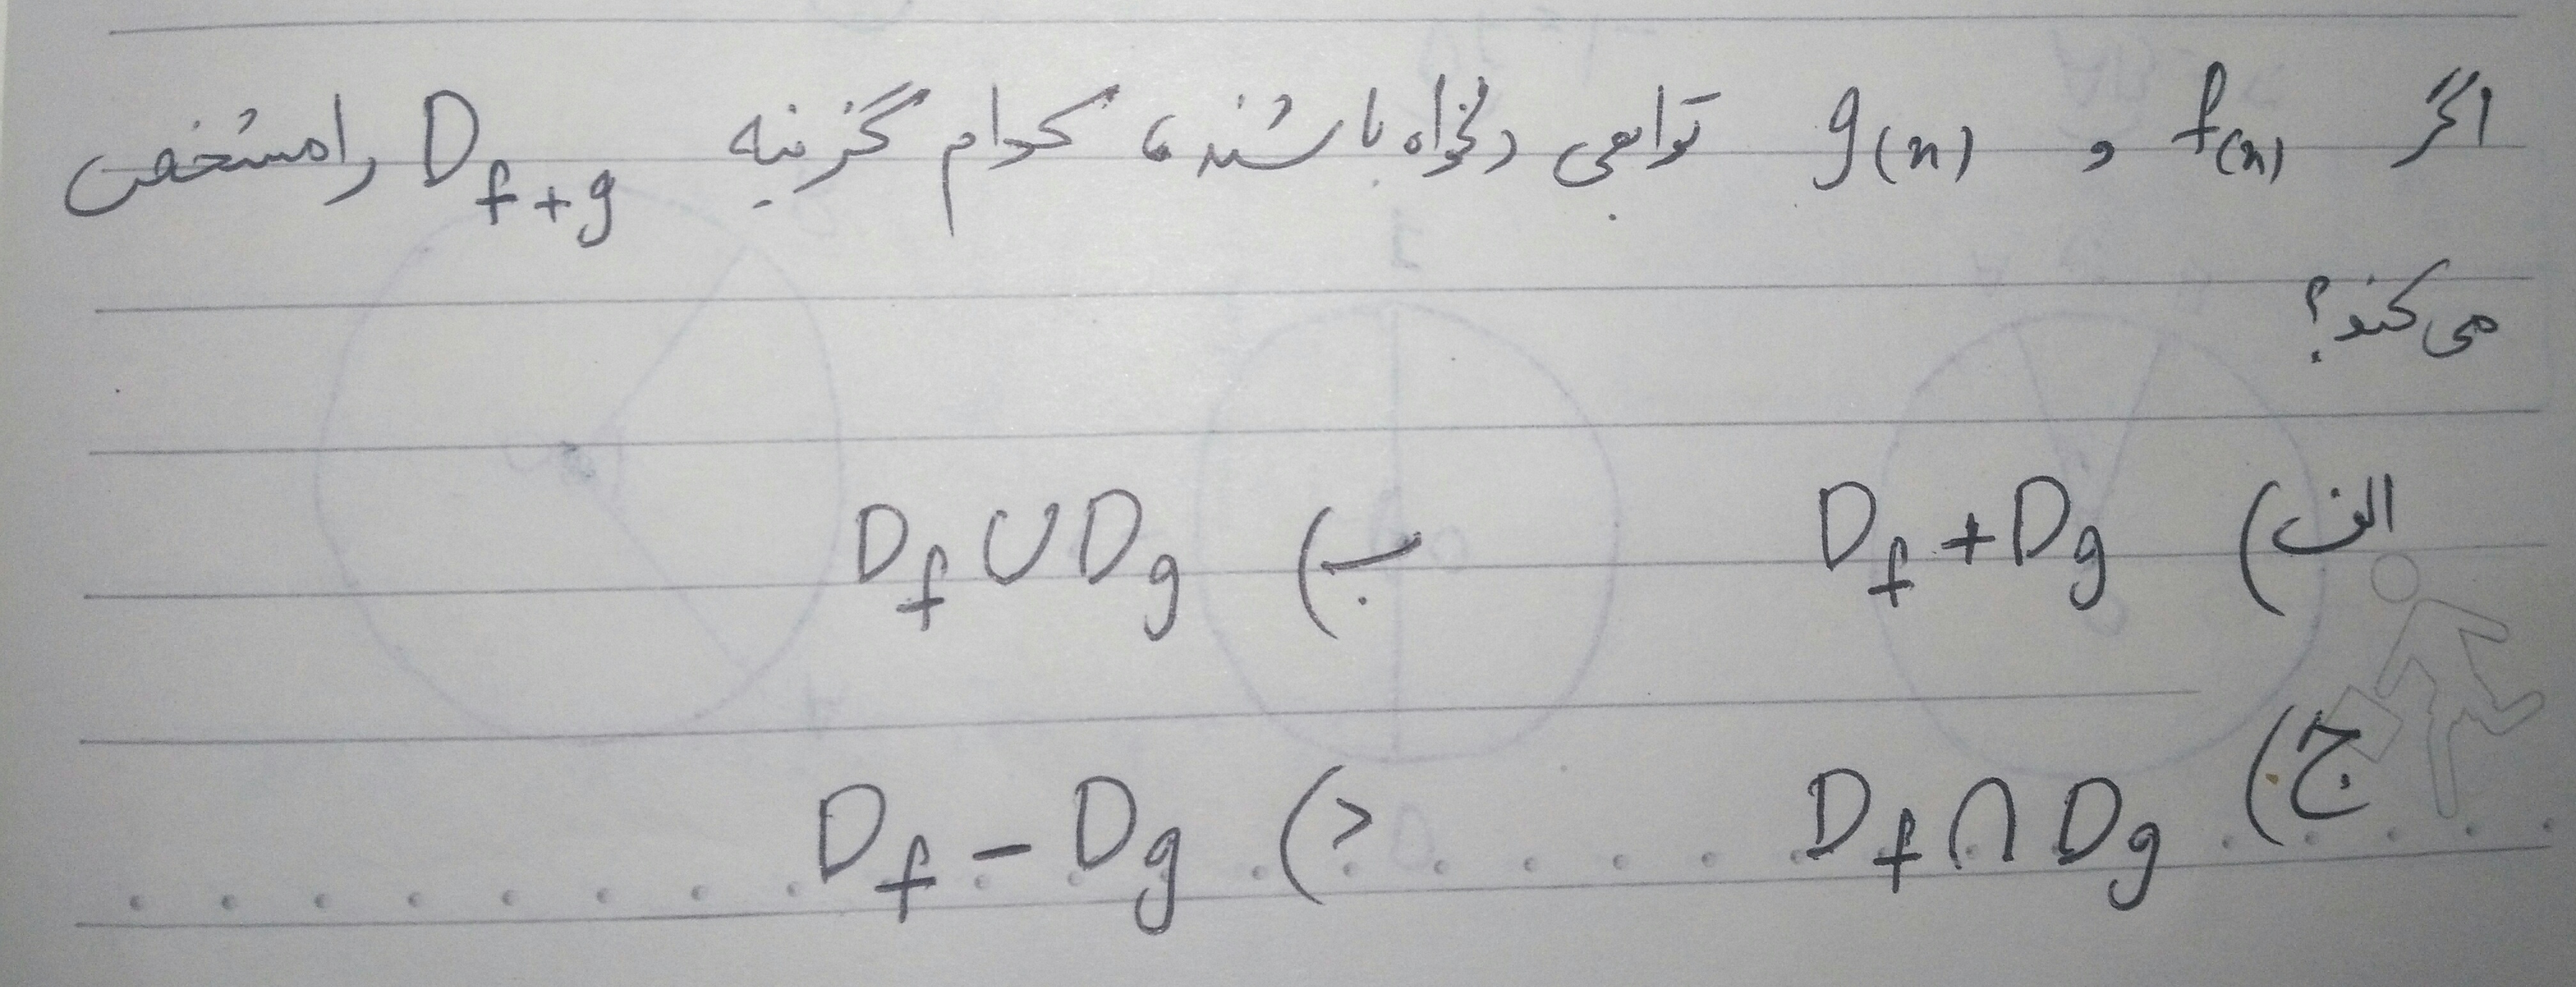 اگر f(x) و g(x) توابعی دلخواه باشند، کدام گزینه D_{f+g} را مشخص
می کند؟
الف) D_f + D_g ب) D_f ∪ D_g
ج) D_f ∩ D_g د) D_f − D_g